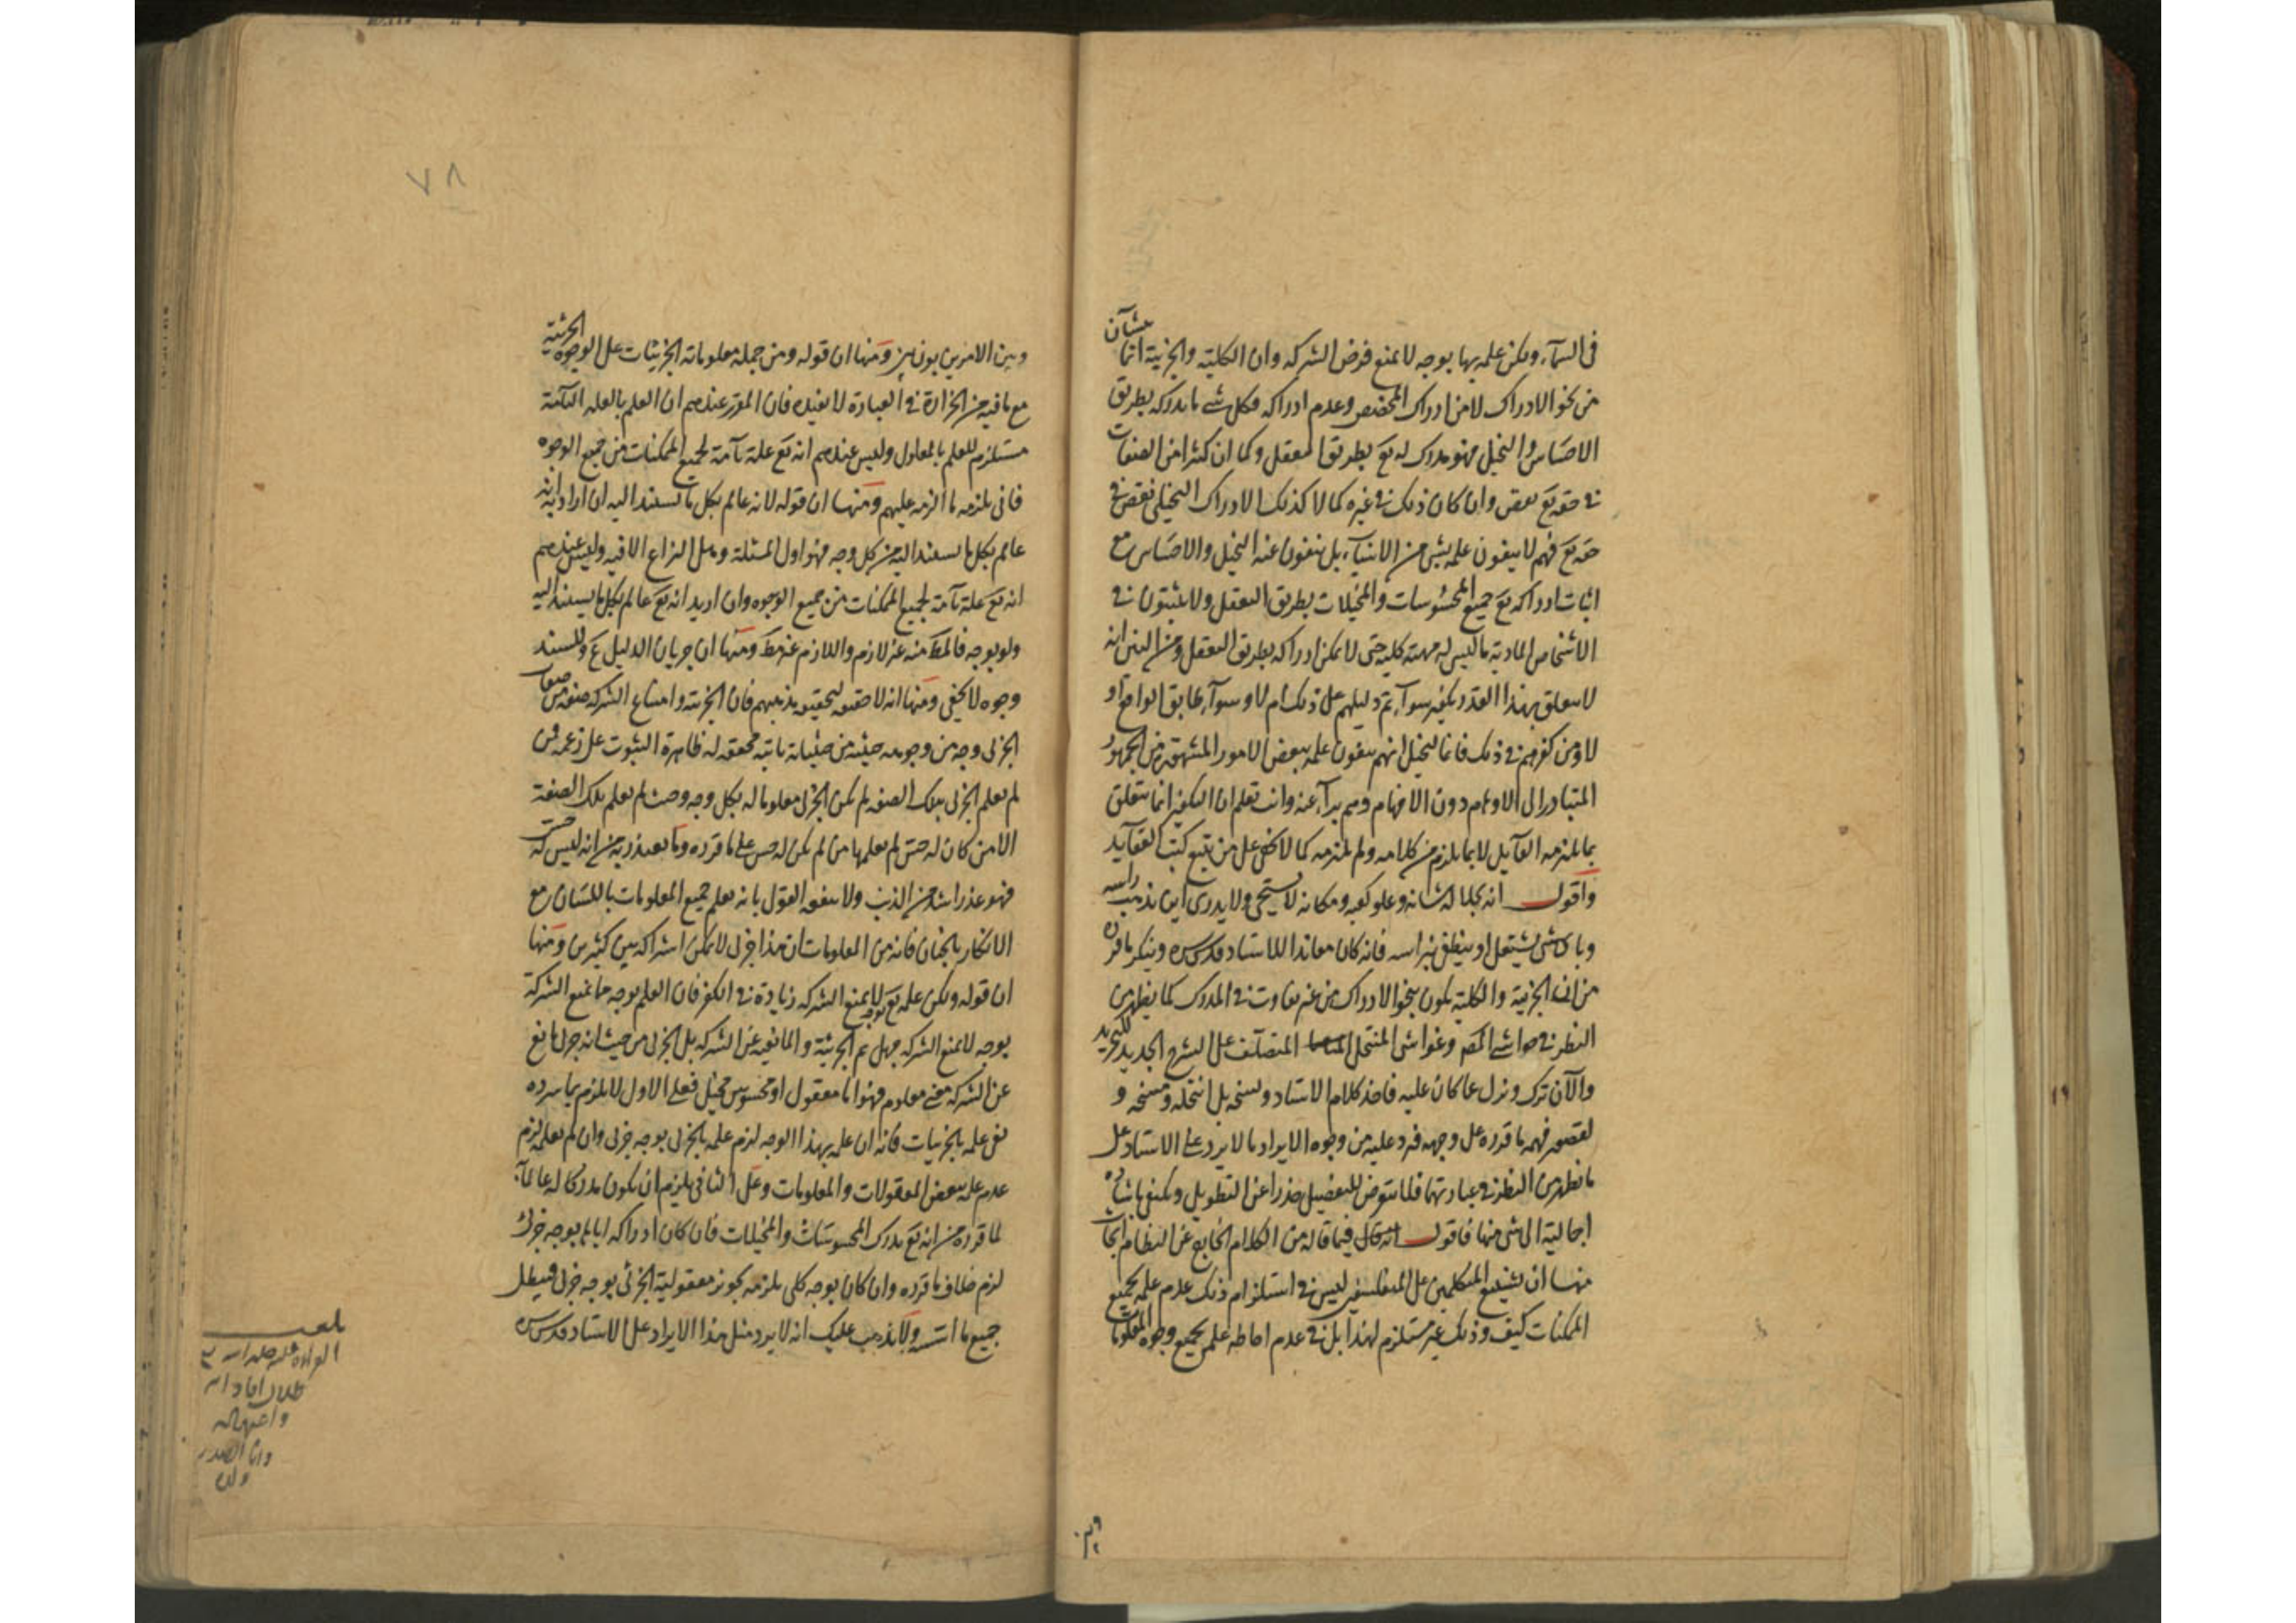 في السمآء ولكن علمه بها بوجه لا يمنع فرض الشركة وان الكلية والجزئية انما ينشآن
من نحو الادراك لا من ادراك المخصص وعدم ادراكه فكل شئ ما يدركه بطريق
الاحساس والتخيل فهو مدرك له تع بطريق التعقل وكما ان كثيرا من الصفات
في حقه تع نقص وان كان ذلك في غيره كمالا كذلك الادراك التخيلي نقص في
حقه تع فهم لا ينفون علمه بشئ من الاشيآء بل ينفون عنه التخيل والاحساس مع
اثبات ادراكه تع جميع المحسوسات والمخيلات بطريق التعقل ولا يثبتون في
الاشخاص المادية ما ليس له مهية كلية حتى لا يمكن ادراكه بطريق التعقل ومن البين انه
لا يتعلق بهذا القدر تكفير سوآء تم دليلهم على ذلك ام لا وسوآء طابق الواقع او
لا ومن كفرهم في ذلك فانما تخيل انهم ينفون علمه ببعض الامور المشهور من الجمهور
المتبادر الى الاوهام دون الافهام وهم برآء عنه وانت تعلم ان التكفير انما يتعلق
بما يلتزمه القآيل لا بما يلزم من كلامه ولم يلتزمه كما لا يخفى على من تتبع كتب العقآيد
واقول انه بجلالة شانه وعلو كعبه ومكانه لا يستحي ولا يدري اين يذهب راسه
وباى شئ يشتعل او ينطق نبراسه فانه كان معاندا للاستاد قدس سره وينكر ما قرره
من ان الجزئية والكلية يكون بنحو الادراك من غير تفاوت في المدرك كما يظهر من
النظر في حواشي المص وغواشى المنتحل المتصلف على الشرح الجديد للتجريد
والآن ترك ونزل عما كان عليه فاخذ كلام الاستاد ونسخه بل انتحله ومسخه و
لقصور فهمه ما قرره على وجهه فرد عليه من وجوه الايراد ما لا يرد على الاستاد على
ما يظهر من النظر في عبارتهما فلنا نتعرض للتفصيل حذرا عن التطويل ونكتفى باشارة
اجمالية الى شئ منها فاقول انه قال فيما قاله من الكلام الخارج عن النظام ابحاث
منها ان تشنيع المتكلمين على المتفلسفين ليس في استلزام ذلك عدم علمه بجميع
الممكنات كيف وذلك غير مستلزم لهذا بل في عدم احاطة علمه بجميع وجوه المعلومات
وبين
٧٨
وبين الامرين بون بين ومنها ان قوله ومن جملة معلوماته الجزئيات على الوجوه الجزئية
مع ما فيه من الحزازة في العبارة لا يفيده فان المقرر عندهم ان العلم بالعلة التآمة
مستلزم للعلم بالمعلول وليس عندهم انه تع علة تآمة لجميع الممكنات من جميع الوجوه
فانى يلزمه ما الزمه عليهم ومنها ان قوله لانه عالم بكل ما يستند اليه ان اراد به انه
عالم بكل ما يستند اليه من كل وجه فهو اول المسئلة وهل النزاع الا فيه وليس عندهم
انه تع علة تآمة لجميع الممكنات من جميع الوجوه وان اريد انه تع عالم بكل ما يستند اليه
ولو بوجه فالمط منه غير لازم واللازم غير مط ومنها ان جريان الدليل ع وللسند
وجوه لا يخفى ومنها انه لا حقيقة لتحقيقه مذهبهم فان الجزئية وامتناع الشركة صفة من صفات
الجزئى وجه من وجوهه حيثية من حيثياته ثابتة محققة له ظاهرة الثبوت على زعمه فمن
لم يعلم الجزئى بتلك الصفة لم يكن الجزئى معلوما له بكل وجه وحيث لم يعلم بتلك الصفة
الا من كان له حس لم يعلمها من لم يكن له حس على ما قرره وما يعتذر به من انه ليس له حس
فهو عذر اشد من الذنب ولا ينفع القول بانه يعلم جميع المعلومات باللسان مع
الانكار بالجنان فانه من المعلومات ان هذا جزئى لا يمكن اشتراكه بين كثيرين ومنها
ان قوله ولكن علمه تع بوجه لا يمنع الشركة زيادة في الكفر فان العلم بوجه ما يمنع الشركة
بوجه لا يمنع الشركة جهل ثم الجزئية والمانعية عن الشركة بل الجزئى من حيث انه جزئى مانع
عن الشركة معنى معلوم فهو اما معقول او محسوس مخيل فعلى الاول لا يلزم بما سرده
نفى علمه بالجزئيات فانه ان علمه بهذا الوجه لزم علمه بالجزئى بوجه جزئى وان لم يعلمه لزم
عدم علمه ببعض المعقولات والمعلومات وعلى الثانى يلزم ان يكون مدركا له عالما به
لما قرره من انه تع يدرك المحسوسات والمخيلات فان كان ادراكه اياها بوجه جزئى
لزم خلاف ما قرره وان كان بوجه كلى يلزمه تجويز معقولية الجزئى بوجه جزئى فيبطل
جميع ما اسسه ولا يذهب عليك انه لا يرد مثل هذا الايراد على الاستاد قدس سره